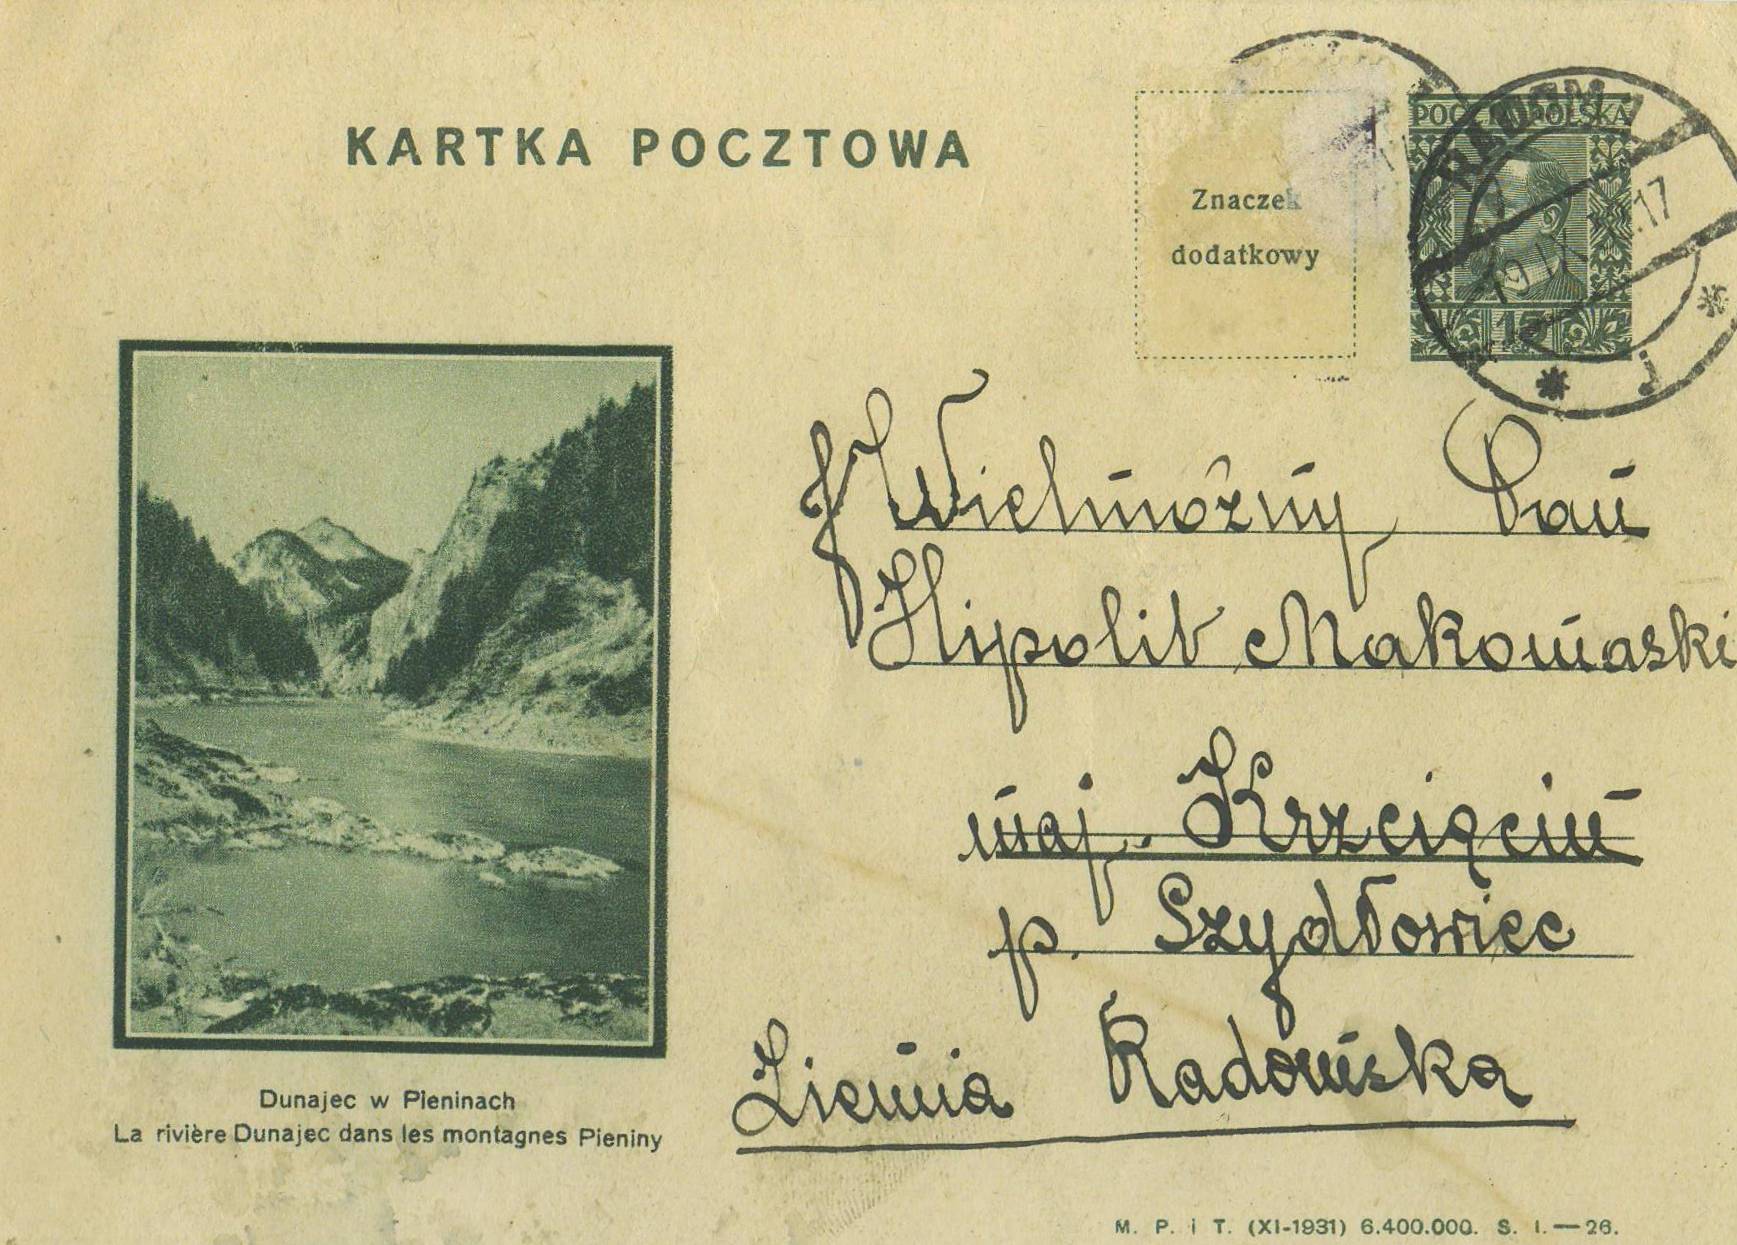 KARTKA POCZTOWA
Znaczek
dodatkowy
POCZTA POLSKA
15
RADOM 1
19 IX 17
J Wielmożny Pan
Hipolit Makomaski
maj. Krzcięcin
p. Szydłowiec
Ziemia Radomska
Dunajec w Pieninach
La rivière Dunajec dans les montagnes Pieniny
M. P. i T. (XI-1931) 6.400.000. S. I.—26.